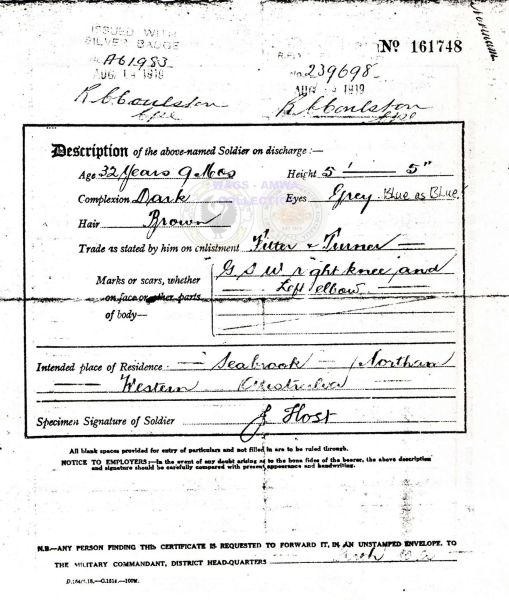 ISSUED WITH
SILVER BADGE
No 161748
A61983
No. 239698
AUG 1919
AUG 1919
R C Coulston
R C Coulston
Cpl
Cpl
Description of the above-named Soldier on discharge:—
Age 32 Years 9 Mos Height 5' 5"
WAGS - AMWA
COLLECTION
Complexion Dark Eyes Grey Blue as BLUE
Hair Brown
Trade as stated by him on enlistment Fitter & Turner
Marks or scars, whether G S W right knee and
on face or other parts Left elbow
of body—
Intended place of Residence Seabrook Northam
Western Australia
Specimen Signature of Soldier J Host
All blank spaces provided for entry of particulars and not filled in are to be ruled through.
NOTICE TO EMPLOYERS:—In the event of any doubt arising as to the bona fides of the bearer, the above description
and signature should be carefully compared with present appearance and handwriting.
N.B.—ANY PERSON FINDING THIS CERTIFICATE IS REQUESTED TO FORWARD IT, IN AN UNSTAMPED ENVELOPE, TO
THE MILITARY COMMANDANT, DISTRICT HEAD-QUARTERS